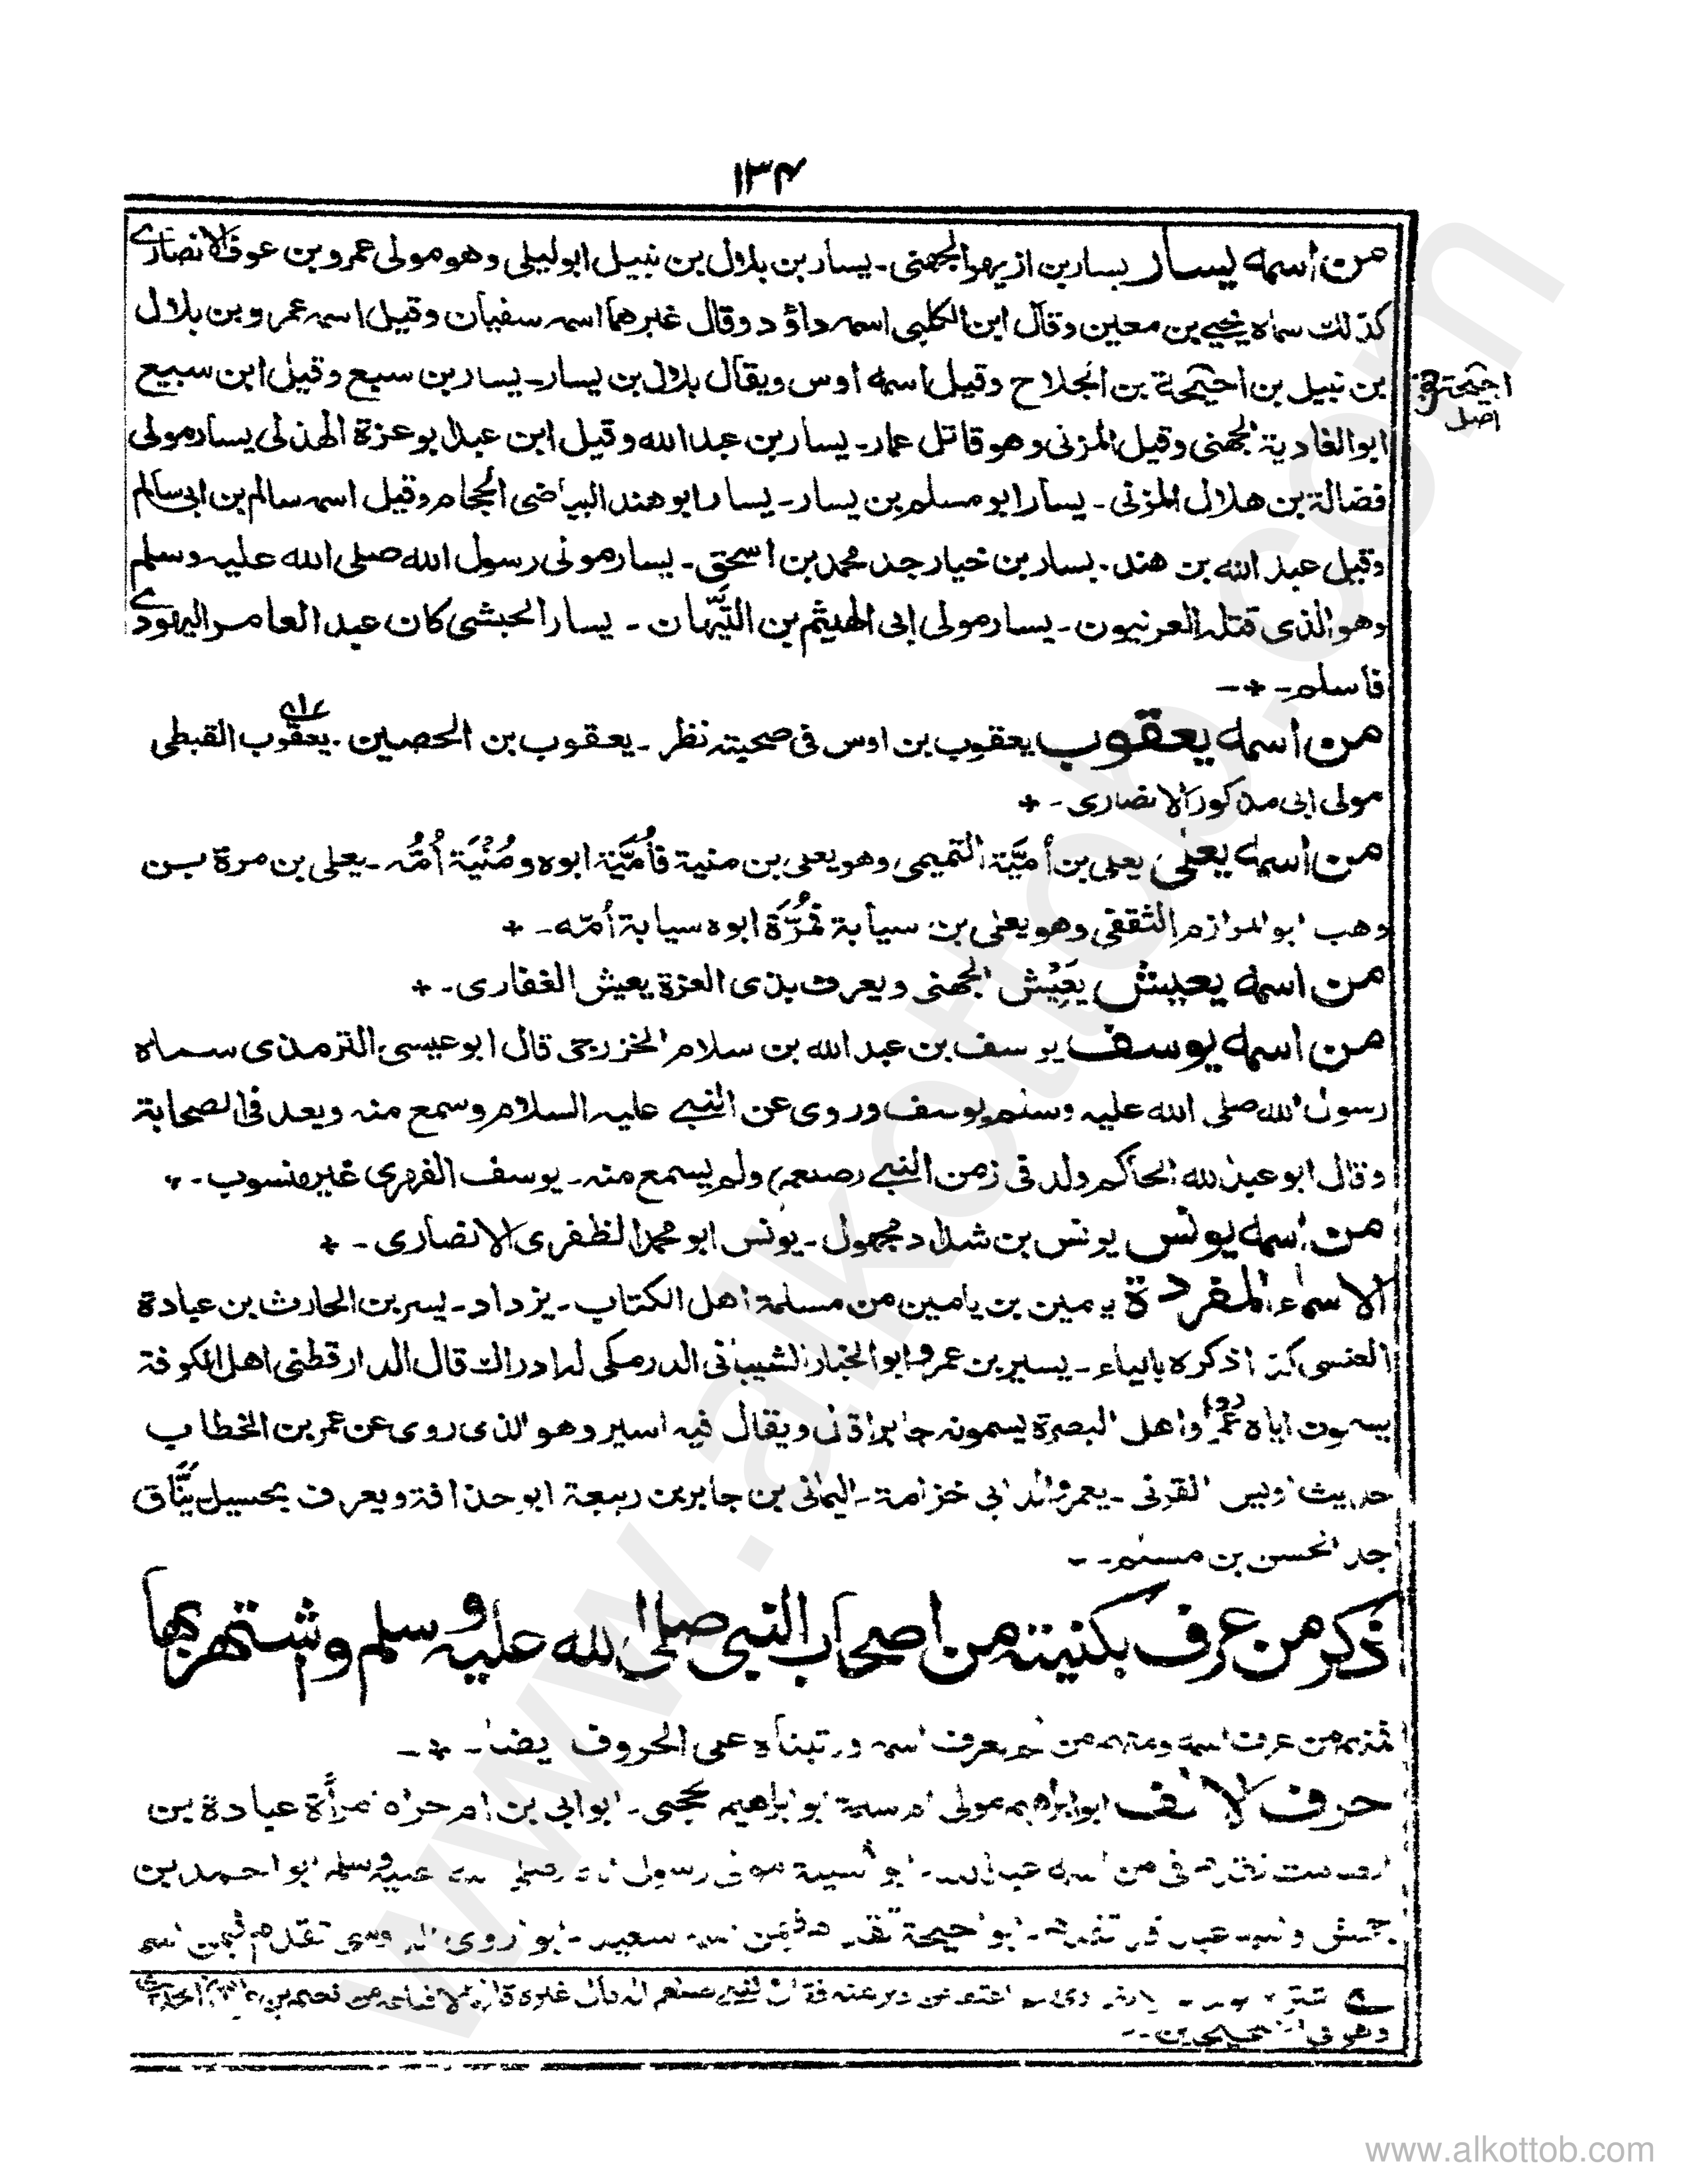 ١٣٤
من اسمه يسار يسار بن ازيهر الجهنى ـ يسار بن بلال بن نبيل ابوليلى وهو مولى عمرو بن عوف الانصارى
كذلك سماه يحيى بن معين وقال ابن الكلبى اسمه داؤد وقال غيرهما اسمه سفيان وقيل اسمه عمرو بن بلال
بن نبيل بن احيحة بن الجلاح وقيل اسمه اوس ويقال بلال بن يسار ـ يسار بن سبع وقيل ابن سبيع
احيحة
اصل
ابو الغادية الجهنى وقيل المزنى وهو قاتل عمار ـ يسار بن عبد الله وقيل ابن عبد ابو عزة الهذلى يسار مولى
فضالة بن هلال المزنى ـ يسار ابو مسلم بن يسار ـ يسار ابو هند البياضى الحجام وقيل اسمه سالم بن ابى سالم
وقيل عبد الله بن هند ـ يسار بن خيار جد محمد بن اسحق ـ يسار مولى رسول الله صلى الله عليه وسلم
وهو الذى قتله العرنيون ـ يسار مولى ابى الهيثم بن التَّيِّهان ـ يسار الحبشى كان عبد العامر اليهودى
فاسلم ـ * ـ
من اسمه يعقوب يعقوب بن اوس فى صحبته نظر ـ يعقوب بن الحصين ـ يعقوب القبطى
مولى ابى مذكور الانصارى ـ *
من اسمه يعلى يعلى بن أميَّة التميمى وهو يعلى بن منية فأُمَيَّة ابوه ومُنْيَة أُمُّه ـ يعلى بن مرة بن
وهب ابو المرازم الثقفى وهو يعلى بن سيابة فمُرَّة ابوه سيابة أمّه ـ *
من اسمه يعيش يَعِيْش الجهنى ويعرف بذى الغرة يعيش الغفارى ـ *
من اسمه يوسف يوسف بن عبد الله بن سلام الخزرجى قال ابو عيسى الترمذى سماه
رسول الله صلى الله عليه وسلم يوسف وروى عن النبى عليه السلام وسمع منه ويعد فى الصحابة
وقال ابو عبد الله الحاكم ولد فى زمن النبى (صلعم) ولم يسمع منه ـ يوسف الفهرى غير منسوب ـ *
من اسمه يونس يونس بن شداد مجهول ـ يونس ابو محمد الظفرى الانصارى ـ *
الاسماء المفردة يامين بن يامين من مسلمة اهل الكتاب ـ يزداد ـ يسر بن الحارث بن عبادة
العنسى كذا ذكره بالياء ـ يسير بن عمرو ابو الخيار الشيبانى الدرمكى له ادراك قال الدارقطنى اهل الكوفة
يسمون اياه عمرو واهل البصرة يسمونه جابرا ويقال فيه اسير وهو الذى روى عن عمر بن الخطاب
حديث اويس القرنى ـ يعمر والد ابى خزامة ـ اليمانى بن جابر بن ربيعة ابو حذافة ويعرف بحسيل يَنَّاق
جد الحسن بن مسلم ـ ـ
ذكر من عرف بكنيته من اصحاب النبى صلى الله عليه وسلم واشتهر بها
فمنهم من عرف اسمه ومنهم من لم يعرف اسمه ورتبناه على الحروف ايضا ـ * ـ
حرف الالف ابو ابراهيم مولى ام سلمة ابو ابراهيم ـ ابو ابى بن ام حرام امرأة عبادة بن
الصامت تقدم فى من اسمه عبد الله ـ مولى رسول الله صلى الله عليه وسلم ابو احمد بن
جحش ـ ابو احيحة تقدم فيمن اسمه سعيد ـ ابو اروى الدوسى تقدم فيمن اسمه
www.alkottob.com